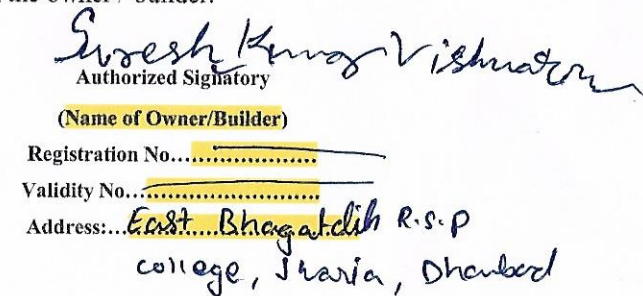 the owner / builder.
Suresh Kumar Vishwakarma
Authorized Signatory
(Name of Owner/Builder)
Registration No....................
Validity No.........................
Address:...East Bhagatdih R.S.P
college, Jharia, Dhanbad